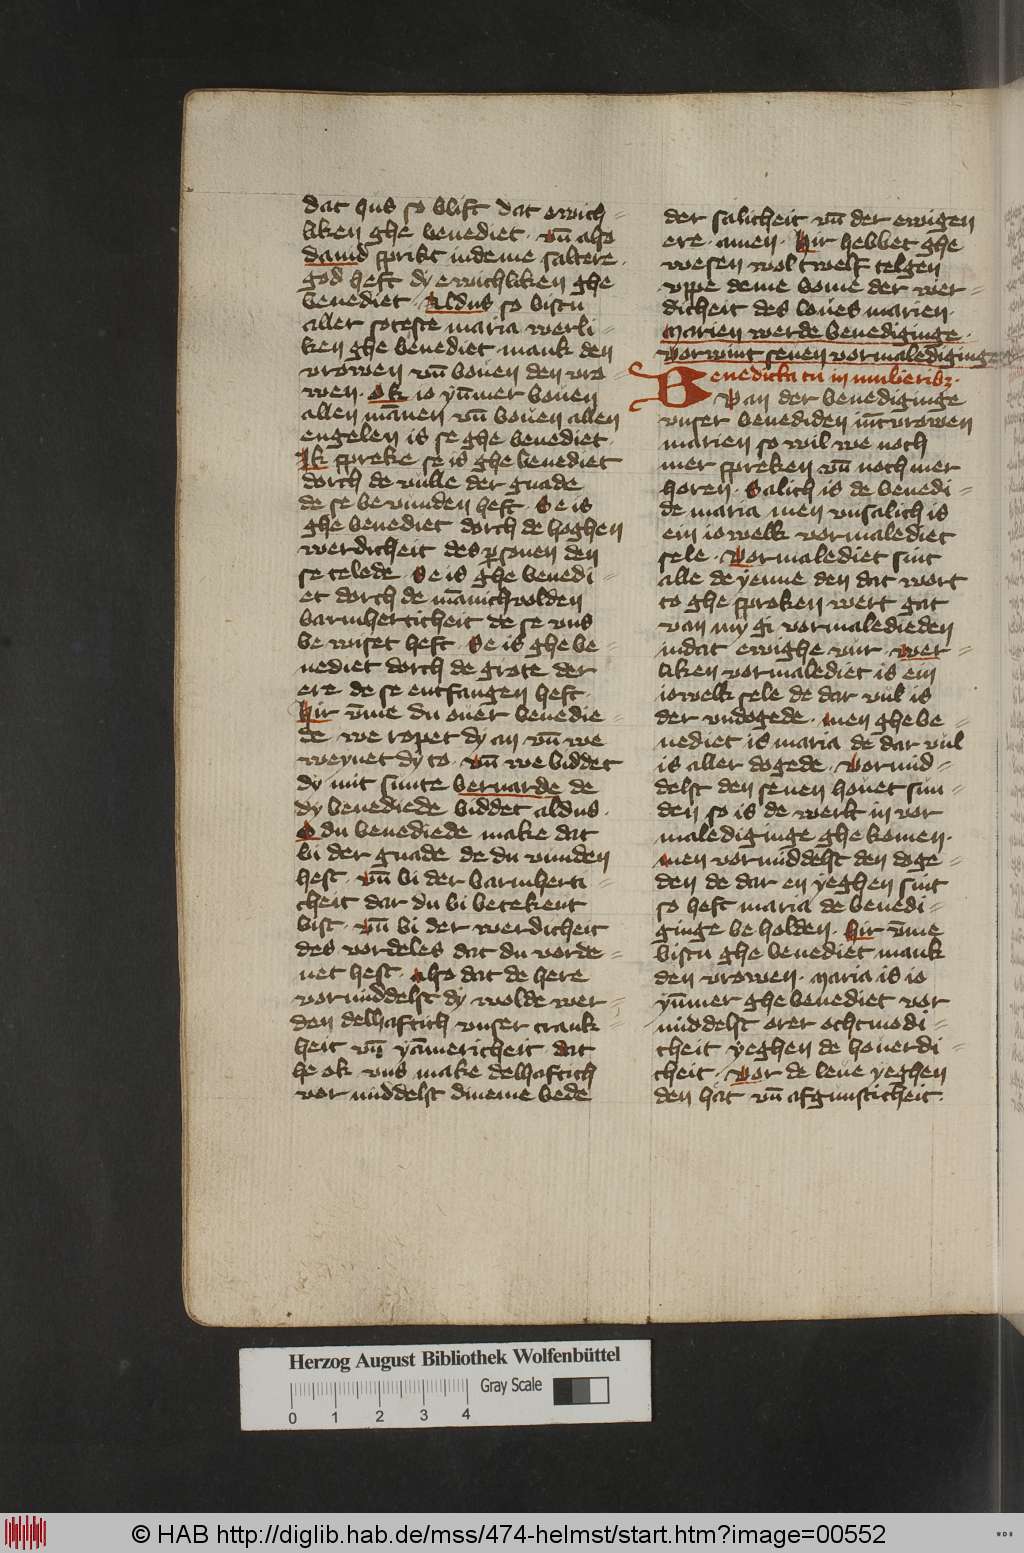 dat hus so blift dat ewich=
liken ghe benediet. vn̄ also
dauid sprikt in deme saltere.
god heft dy ewichliken ghe
benediet. Aldus so bistu
aller soteste maria werli=
ken ghe benediet mank den
vrowen vn̄ bouen den vro=
wen. Ok io ȳmer bouen
allen mānen vn̄ bouen allen
engelen is se ghe benediet.
Ik spreke se is ghe benediet
dorch de vulle der gnade
de se be vunden heft. Se is
ghe benediet dorch de hoghen
werdicheit des p̱sonen den
se telede. Se is ghe benedi=
et dorch de mānichvolden
barmherticheit de se vns
be wiset heft. Se is ghe be=
nediet dorch de grote der
ere de se entfangen heft.
Hir v̄me du ouer benedie=
de we ropet dy an vn̄ we
weynet dy to. vn̄ we biddet
dy mit sunte bernarde de
dy benediede biddet aldus.
O du benediede make dat
bi der gnade de du vunden
hest. vn̄ bi der barmherti=
cheit dar du bi betekent
bist. vn̄ bi der werdicheit
des vordeles dat du vorde=
net hest. Also dat de here
vormiddelst dy wolde wer=
den delhaftich vnser crank=
heit vn̄ yāmericheit. dat
he ok vns make delhaftich
vor middelst dineme bede
der salicheit vn̄ der ewigen
ere. amen. Hir hebbet ghe
wesen wol twelf telgen
vppe deme bome der wer=
dicheit des loues marien.
Marien werde benediginge.
vorwint seuen vormalediginge
Benedicta tu in mulieribꝫ.
Van der benediginge
vnser benediden iūcvrowen
marien so wil we noch
mer spreken vn̄ noch mer
horen. Salich is de benedi=
de maria men vnsalich is
ein iowelk vormalediet
sele. Vormalediet sint
alle de yenne den dat wort
to ghe sproken wert gat
van my gi vormaledieden
in dat ewighe vur. Wer=
liken vormalediet is ein
iowelk sele de dar vul is
der vndogede. Men ghe be=
nediet is maria de dar vul
is aller dogede. Vormid=
delst den seuen houet sun=
den so is de werlt in vor
malediginge ghe komen.
Men vormiddelst den doge=
den de dar en yeghen sint
so heft maria de benedi=
ginge be holden. Hir v̄me
bistu ghe benediet mank
den vrowen. Maria is io
ȳmer ghe benediet vor
middelst orer ochtmodi=
cheit yeghen de houerdi=
cheit. Vor de leue yeghen
den hat vn̄ afgunsticheit.
Herzog August Bibliothek Wolfenbüttel
Gray Scale
0 1 2 3 4
© HAB http://diglib.hab.de/mss/474-helmst/start.htm?image=00552